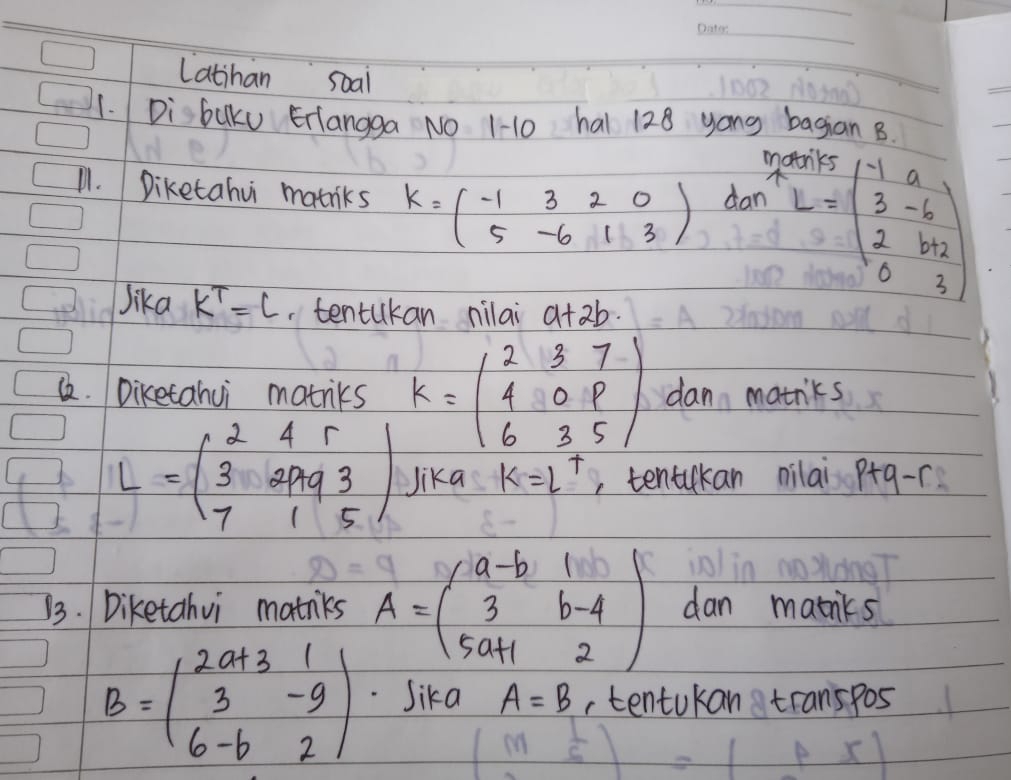 Date:
Latihan soal
1. Di buku Erlangga No 1-10 hal 128 yang bagian B.
11. Diketahui matriks K = ( -1 3 2 0 ) dan matriks L = ( -1 a
5 -6 1 3 3 -6
2 b+2
0 3 )
Jika K^T = L, tentukan nilai a+2b.
2 3 7
12. Diketahui matriks K = ( 4 0 P ) dan matriks
6 3 5
2 4 r
L = ( 3 2p+q 3 ) Jika K=L^T, tentukan nilai P+q-r.
7 1 5
a-b 1
13. Diketahui matriks A = ( 3 b-4 ) dan matriks
5a+1 2
2a+3 1
B = ( 3 -9 ) . Jika A = B, tentukan transpos
6-b 2